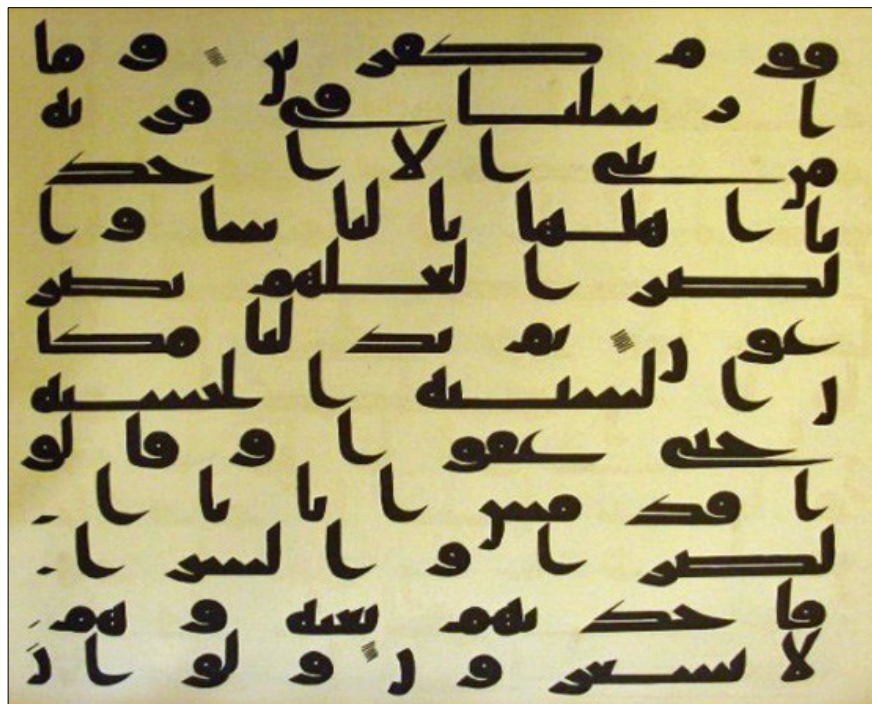 قوم كفرين و ما
ا ر سلنا في قر يه
من نبي ا لا ا خذ
نا ا هلها با لبا سا و ا
لضر ا لعلهم يضر
عو ن ثم بد لنا مكا
ن ا لسييه ا لحسنه
حتى عفو ا و قا لو
ا قد مس ا با نا ا
لضر ا و ا لسر ا
فا خذ نهم بغته و هم
لا يشعر و ن و لو ا ن